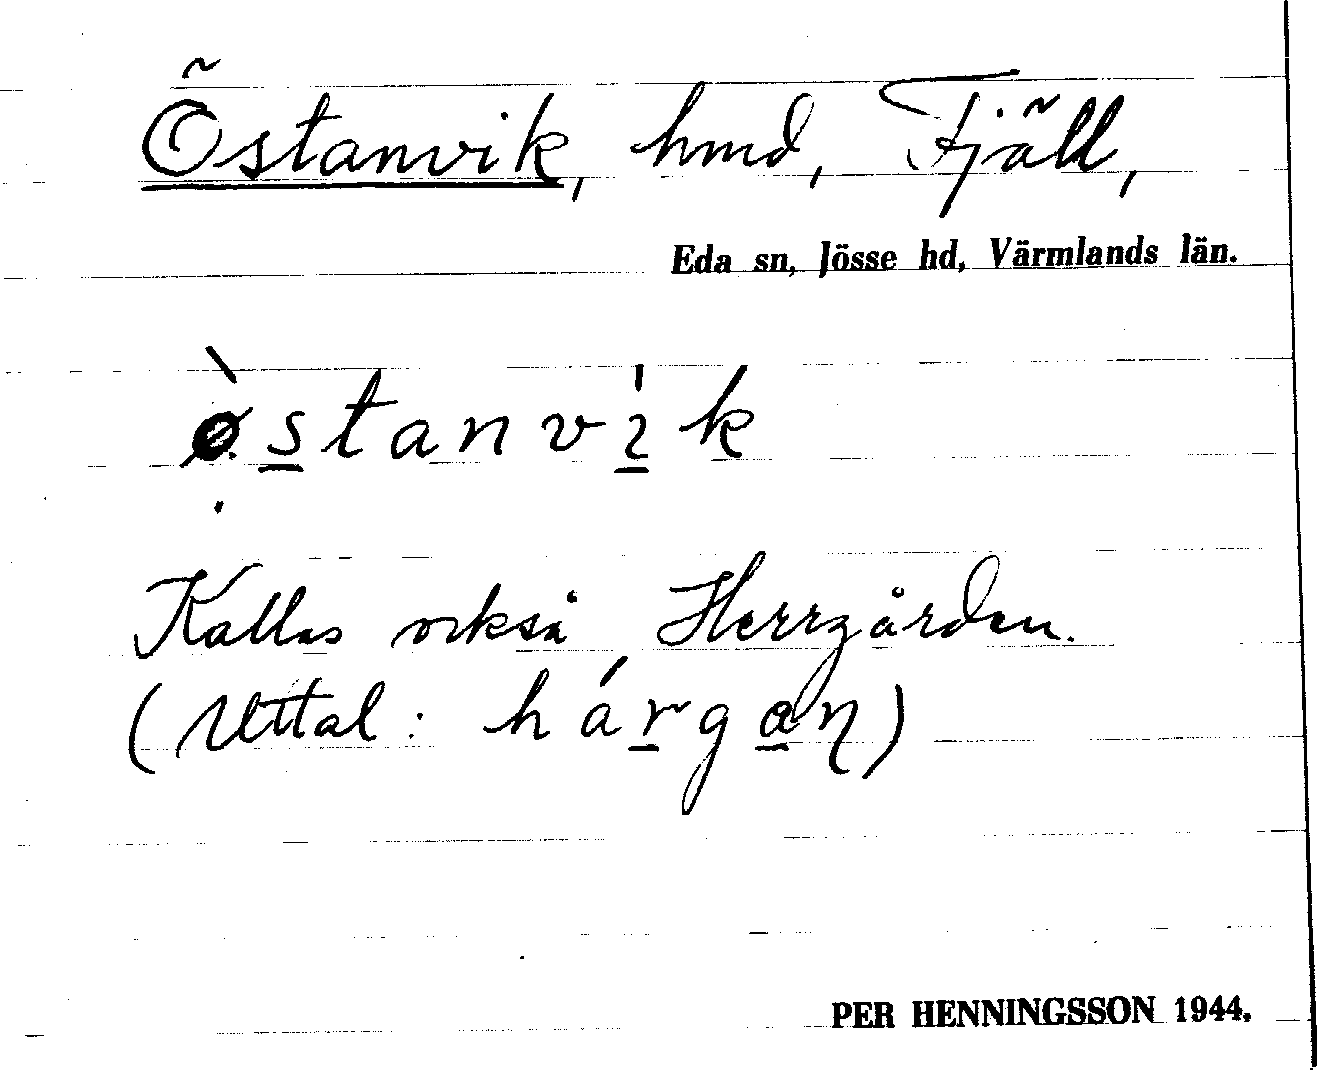 Östanvik, hmd, Fjäll,
Eda sn, Jösse hd, Värmlands län.
ø̀stanvı̍k
Kallas också Herrgården.
(Uttal: hárgaŋ)
PER HENNINGSSON 1944.